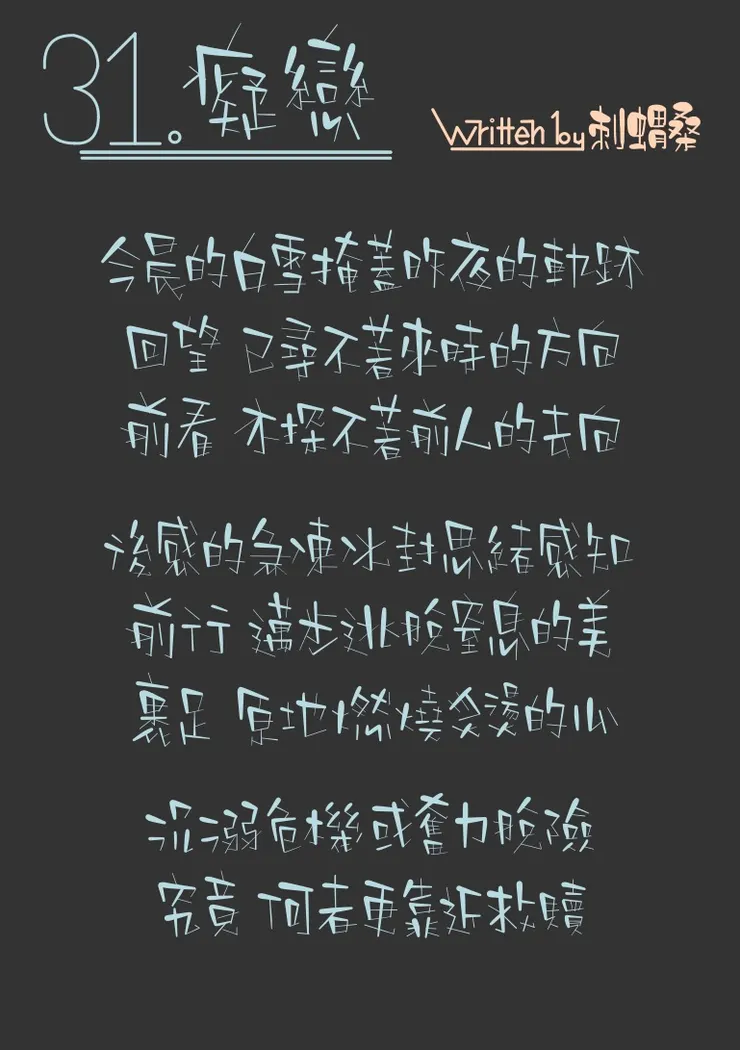 31. 癡戀
Written by 刺蝟桑
今晨的白雪掩蓋昨夜的軌跡
回望 已尋不著來時的方向
前看 亦探不著前人的去向
後感的急凍冰封思緒感知
前行 邁步逃脫窒息的美
裹足 原地燃燒發燙的心
沉溺危機或奮力脫險
究竟 何者更靠近救贖